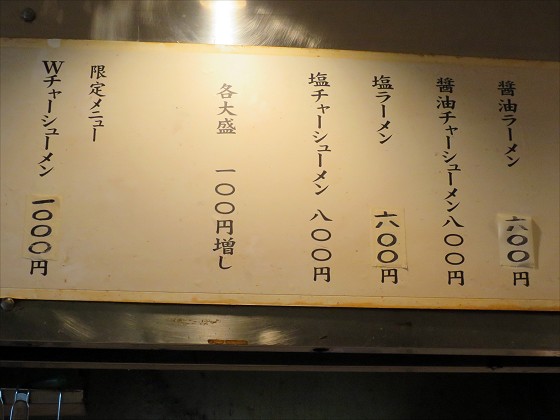 醤油ラーメン 六〇〇円
醤油チャーシューメン 八〇〇円
塩ラーメン 六〇〇円
塩チャーシューメン 八〇〇円
各大盛 一〇〇円増し
限定メニュー
Wチャーシューメン 一〇〇〇円